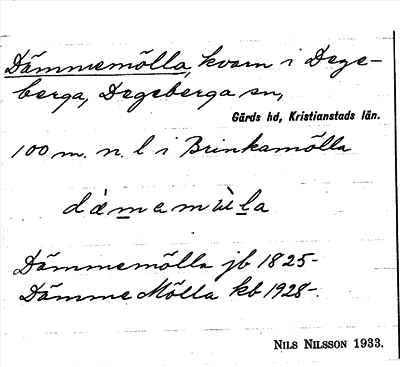 Dämmemölla, kvarn i Dege-
berga, Degeberga sn,
Gärds hd, Kristianstads län.
100 m. n. l i Brinkamölla
dàmemùla
Dämmemölla jb 1825-
Dämme Mölla kb 1928-.
NILS NILSSON 1933.